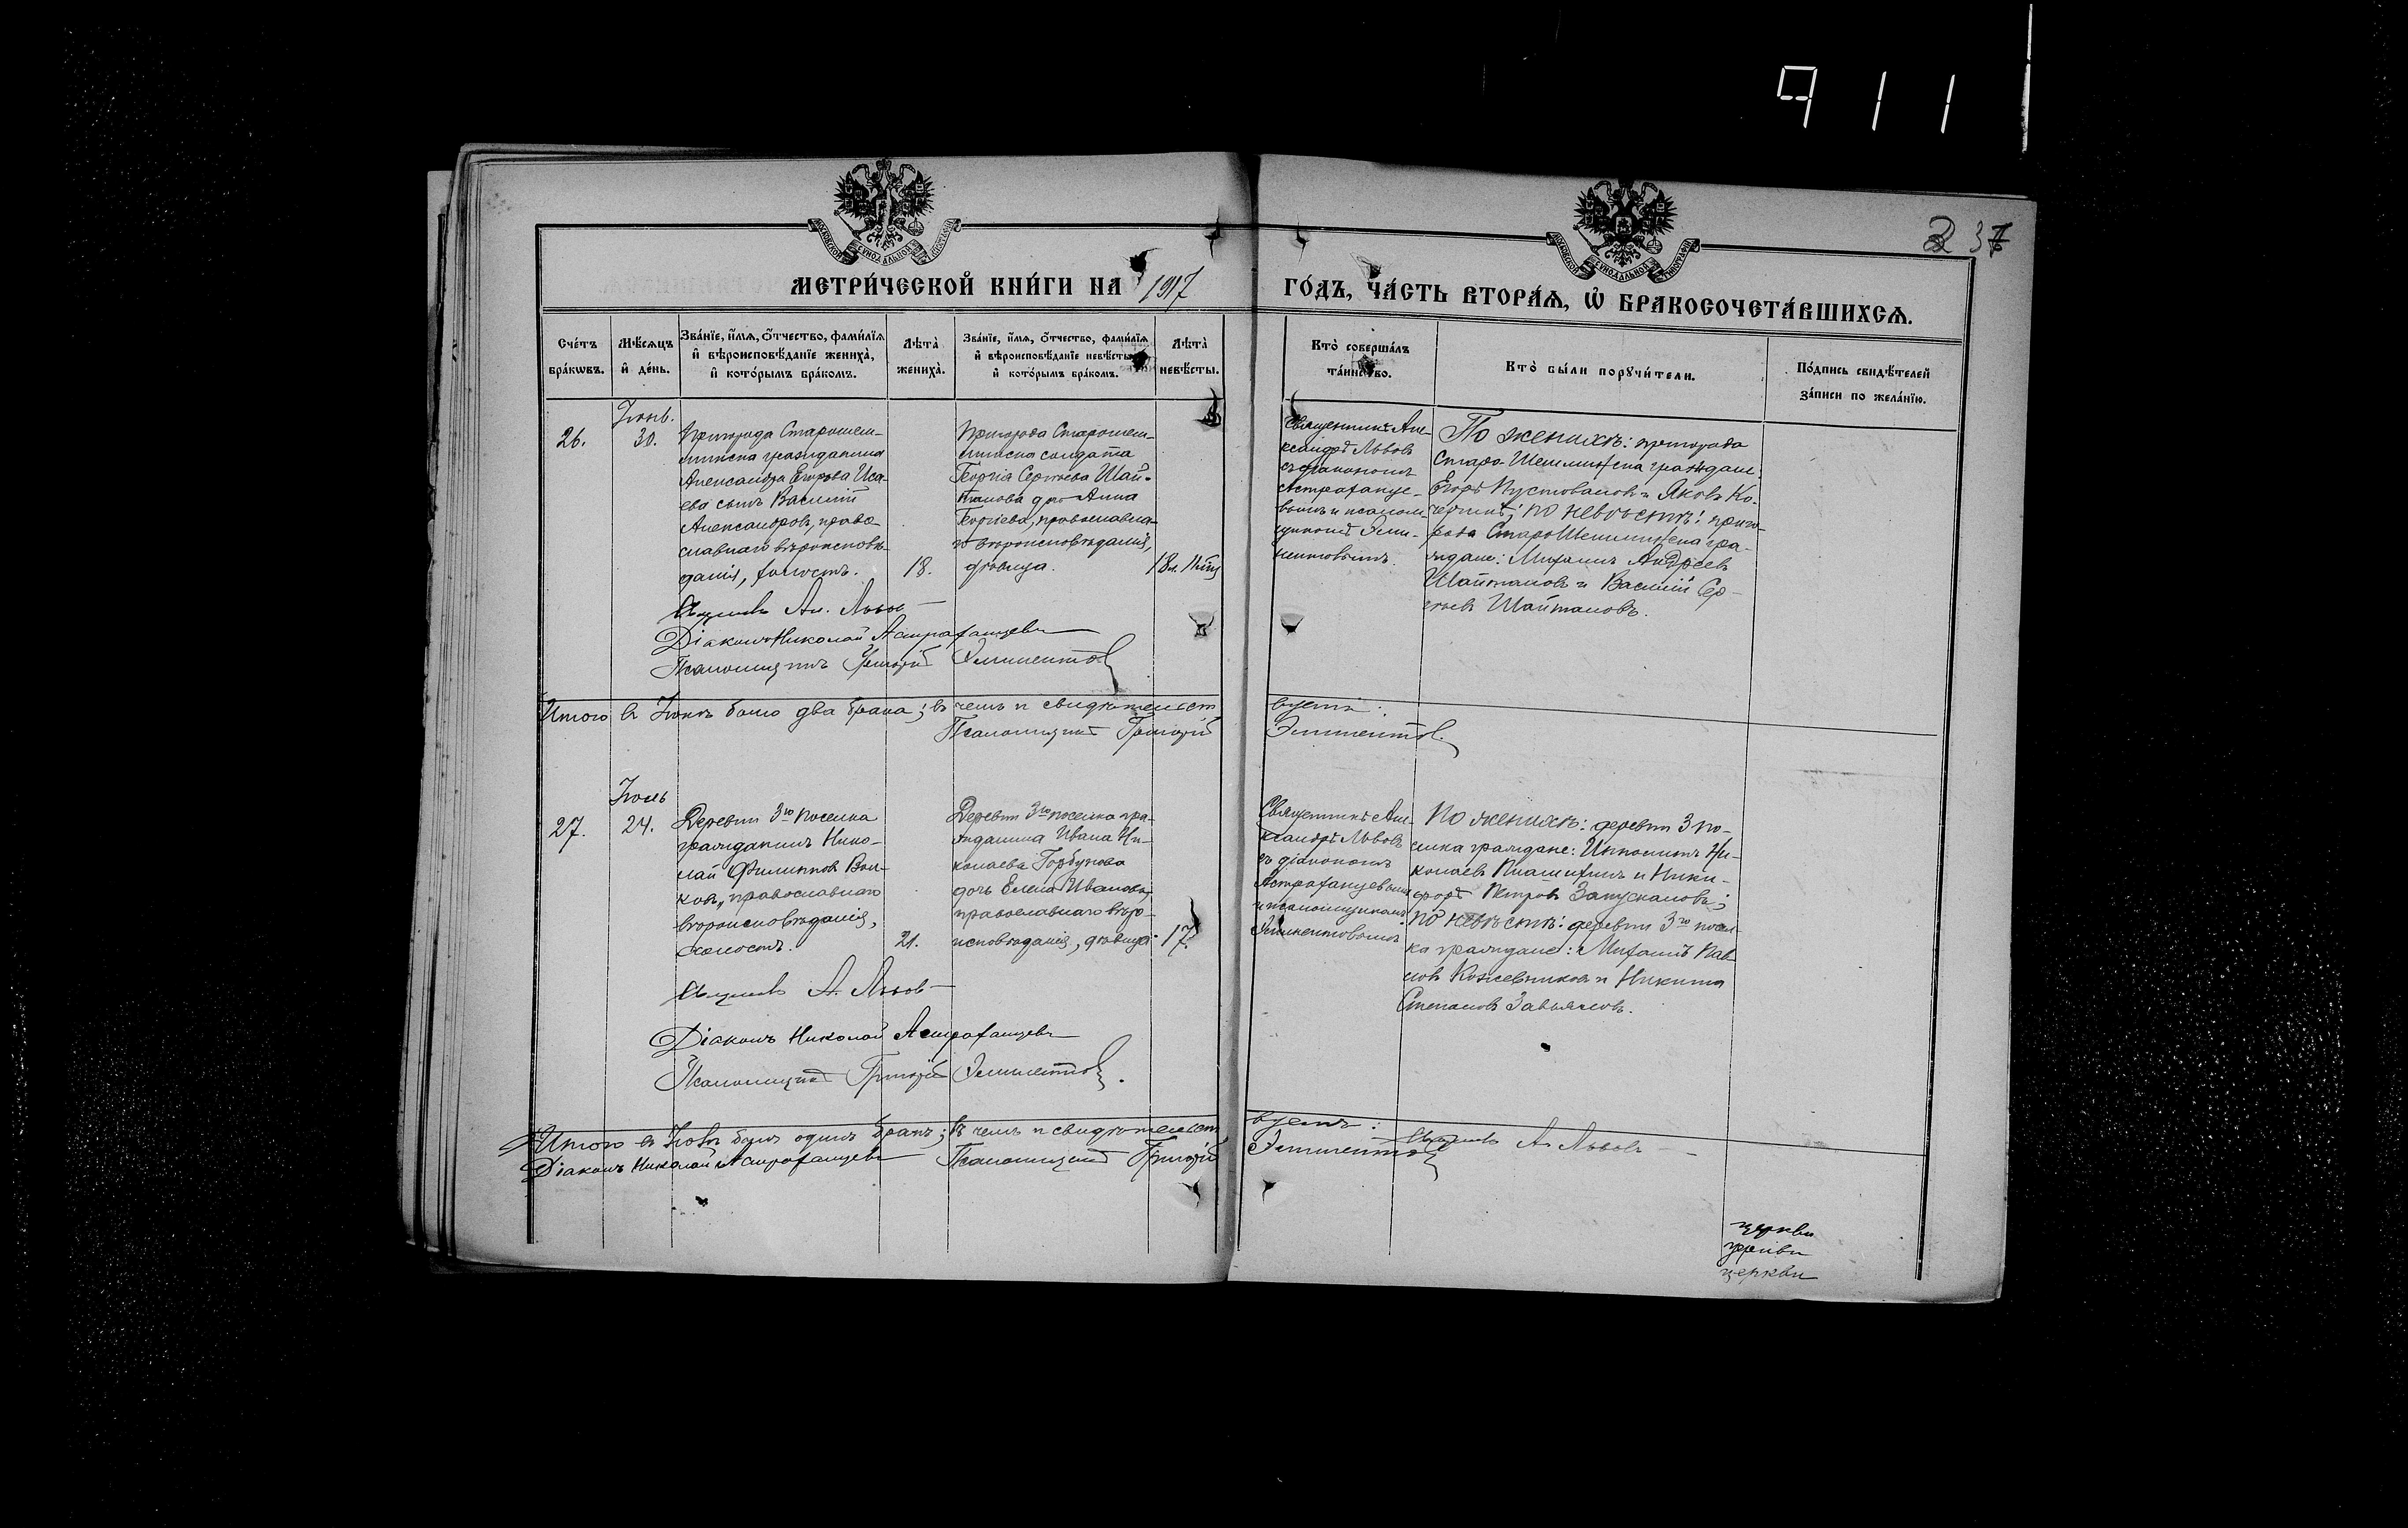 911
237
МЕТРИ́ЧЕСКОЙ КНИ́ГИ НА 1917 ГО́ДЪ, ЧА́СТЬ ВТОРА́Я, Ѡ҆ БРАКОСОЧЕТА́ВШИХСЯ.
Сче́тъ бра́кѡвъ.
Мѣ́сяцъ и҆ де́нь.
Зва́нїе, и҆́мя, ѻ҆́тчество, фами́лїя
и҆ вѣроисповѣ́данїе жениха̀,
и҆ кото́рымъ бра́комъ.
Лѣта̀ жениха̀.
Зва́нїе, и҆́мя, ѻ҆́тчество, фами́лїя
и҆ вѣроисповѣ́данїе невѣ́сты,
и҆ кото́рымъ бра́комъ.
Лѣта̀ невѣ́сты.
Кто̀ соверша́лъ та́инство.
Кто̀ бы́ли порꙋчи́тели.
По́дпись свидѣ́телей
за́писи по жела́нїю.
26.
Іюнь.
30.
Пригорода Старошеш-
минска гражданина
Александра Егорова Иса-
ева сынъ Василій
Александровъ, право-
славнаго вѣроисповѣ-
данія, холостъ.
18.
Пригорода Старошеш-
минска солдата
Георгія Сергѣева Шай-
танова дочь Анна
Георгіева, православна-
го вѣроисповѣданія,
дѣвица.
Священникъ Але-
ксандръ Львовъ
съ діакономъ
Астраханце-
вымъ и псалом-
щикомъ Эпи-
По женихѣ: пригорода
Старо-Шешминска граждане:
Егоръ Пустоваловъ и Яковъ Ко-
по невѣстѣ: приго-
рода СтароШешминска гра-
ждане: Михаилъ Андреевъ
Шайтановъ и Василій Сер-
гѣевъ Шайтановъ.
Священникъ Ал. Львовъ
Діаконъ Николай Астраханцевъ
Псаломщикъ Григорій
Итого въ Іюнѣ было два брака; въ чемъ и свидѣтельст
вуемъ:
Псаломщикъ Григорій
27.
Іюль
24.
Деревни 3го поселка
гражданинъ Нико-
лай Филипповъ Вол-
ковъ, православнаго
вѣроисповѣданія,
холостъ.
21.
Деревни 3го поселка гра-
жданина Ивана Ни-
колаева Горбунова
дочь Елена Иванова,
православнаго вѣро-
исповѣданія, дѣвица.
17.
Священникъ Але-
ксандръ Львовъ
съ діакономъ
Астраханцевымъ
и псаломщикомъ
По женихѣ: деревни 3 по-
селка граждане: Ипполитъ Ни-
колаевъ и Ники-
форъ Петровъ Запускаловъ;
по невѣстѣ: деревни 3го посел-
ка граждане: Михаилъ Пав-
ловъ Кожевниковъ и Никита
Степановъ Завьяловъ.
Священникъ А. Львовъ
Діаконъ Николай Астраханцевъ
Псаломщикъ Григорій
Итого въ Іюлѣ былъ одинъ бракъ; въ чемъ и свидѣтельст
вуемъ:
Священникъ А. Львовъ
Діаконъ Николай Астраханцевъ
Псаломщикъ Григорій
церкви
церкви
церкви